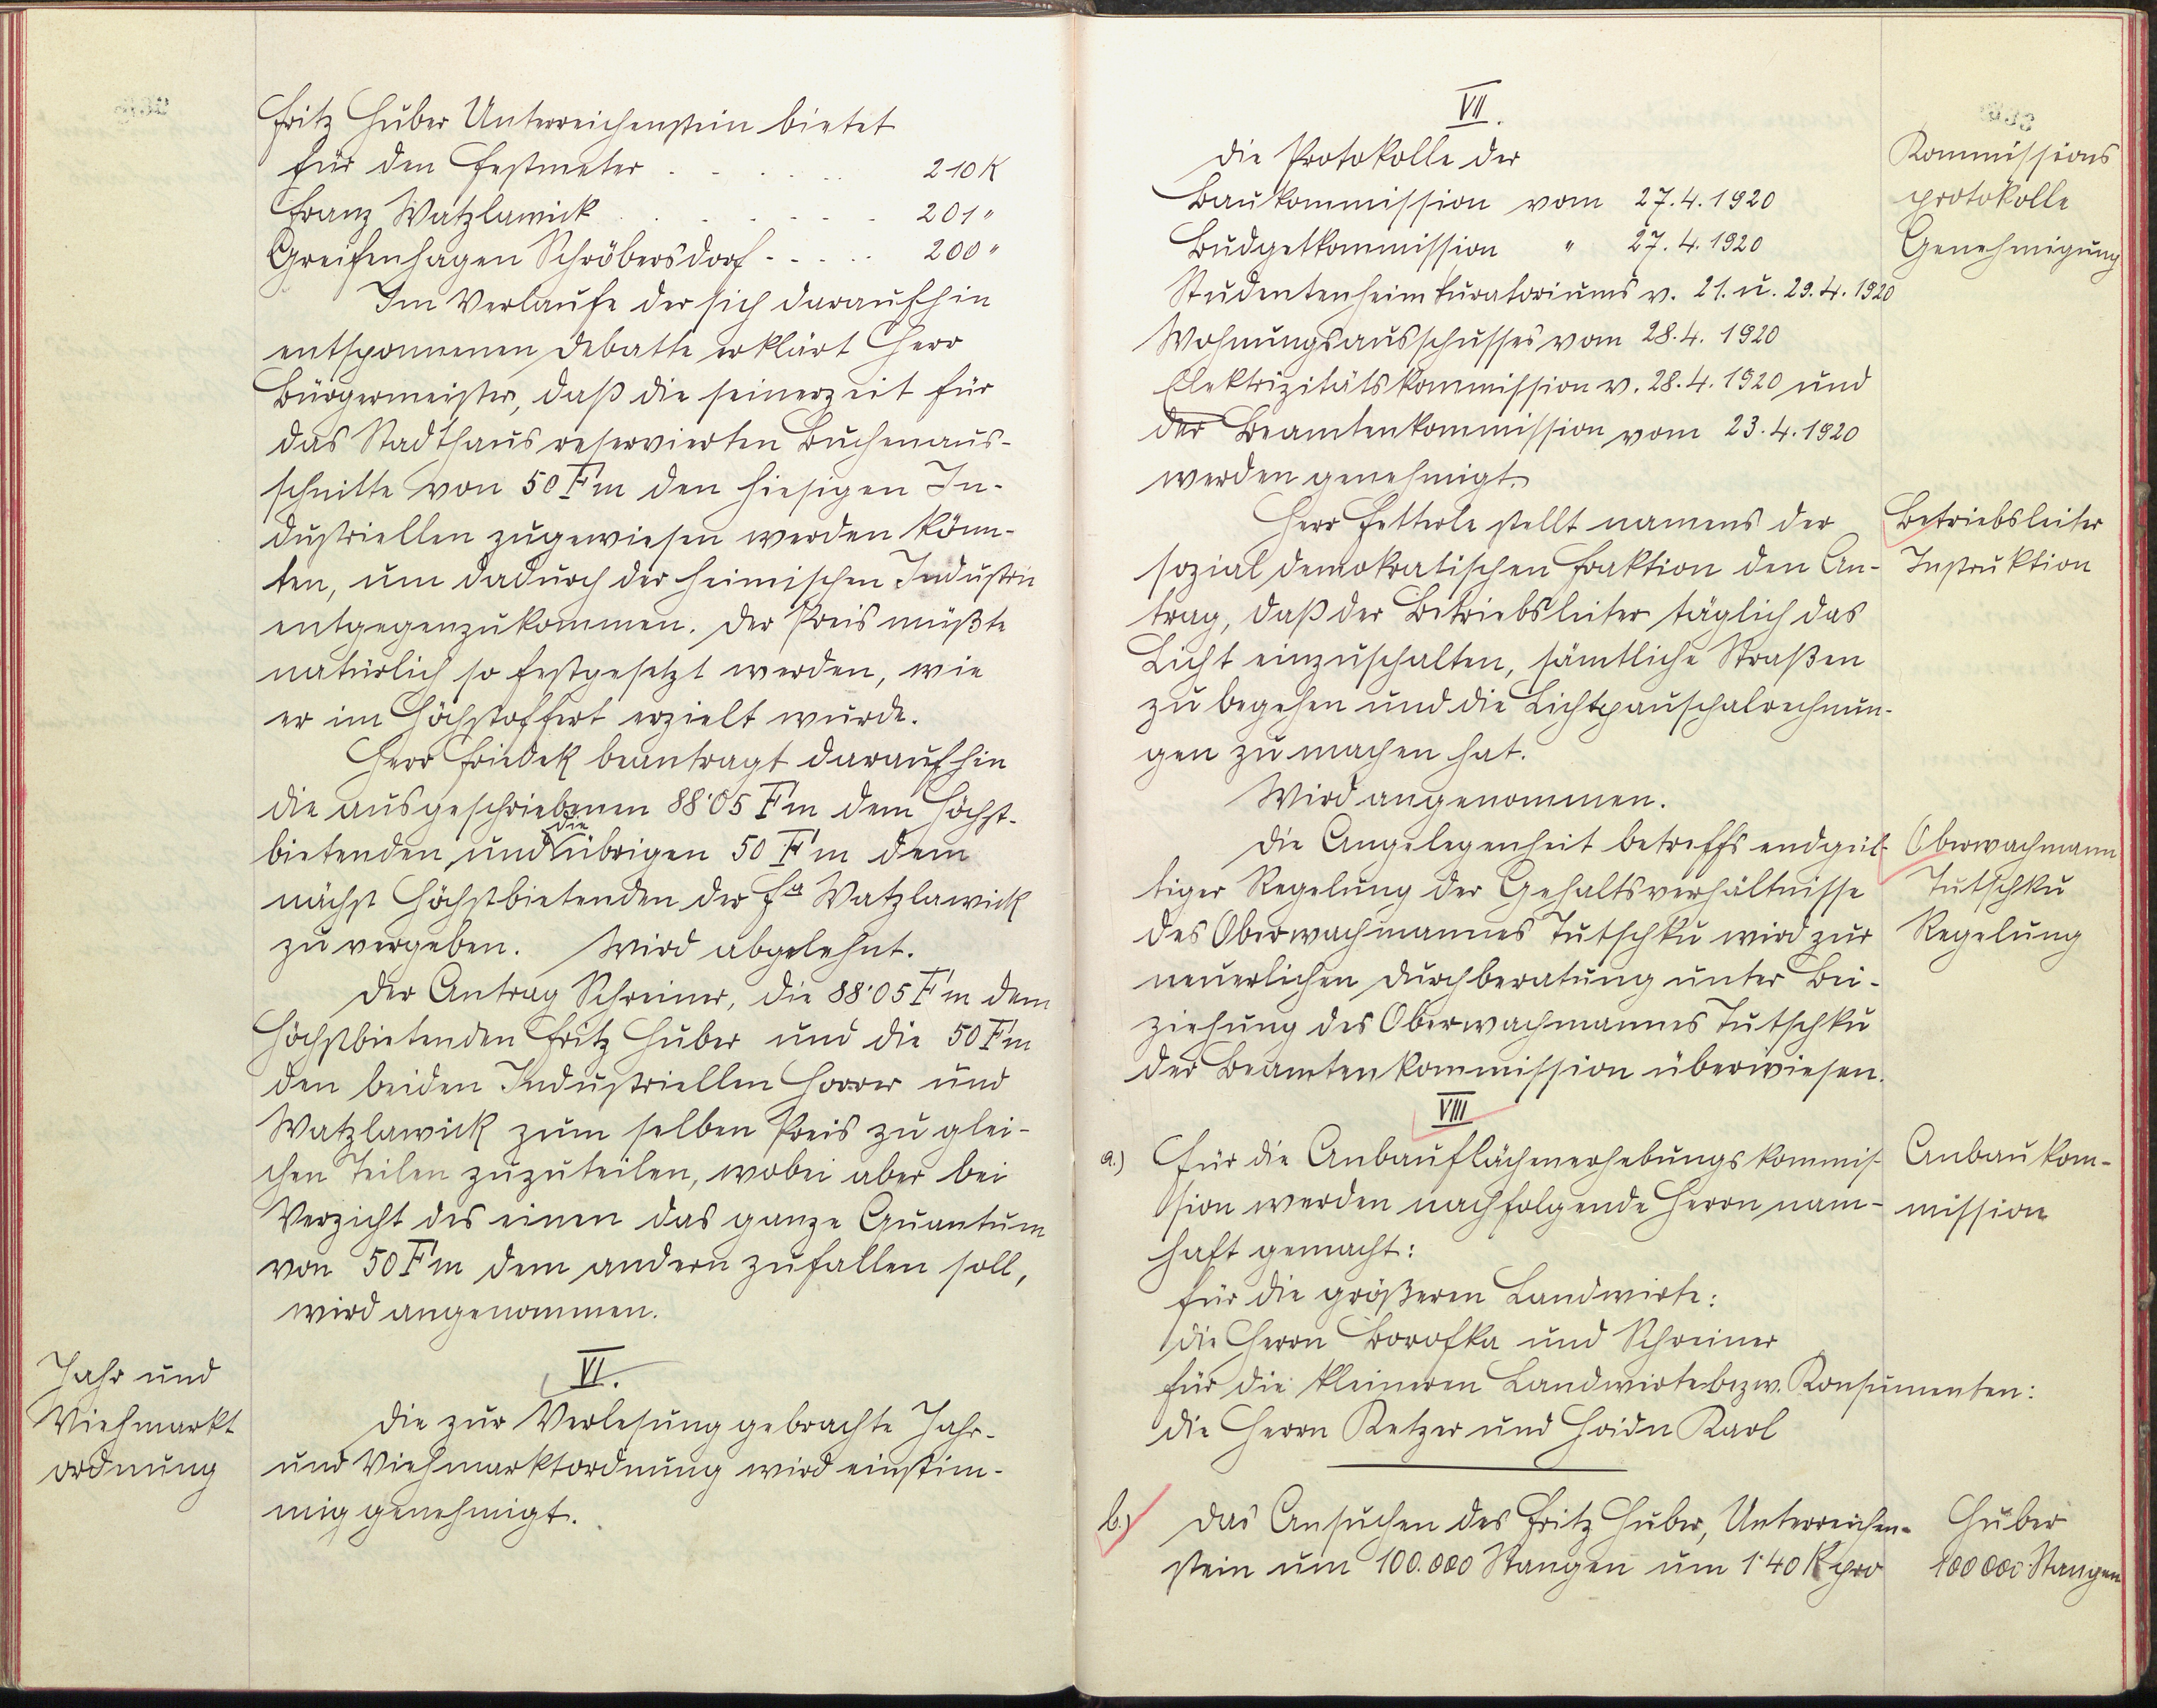 Fritz Huber Unterreichenstein bietet
für den Festmeter . . . . . . 210 K
Franz Watzlawick . . . . . . . 201 "
Greifenhagen Schröbersdorf - - - - - 200 "
Im Verlaufe der sich daraufhin
entsponnenen Debatte erklärt Herr
Bürgermeister, daß die seinerzeit für
das Stadthaus reservierten Buchenaus-
schnitte von 50 Fm den hiesigen In-
dustriellen zugewiesen werden könn-
ten, um dadurch der heimischen Industrie
entgegenzukommen. Der Preis müßte
natürlich so festgesetzt werden, wie
er im Höchstoffert erzielt wurde.
Herr Friedek beantragt daraufhin
die ausgeschriebenen 88·05 Fm dem Höchst-
bietenden und die übrigen 50 Fm dem
nächst Höchstbietenden der Fa Watzlawick
zu vergeben. Wird abgelehnt.
Der Antrag Schreiner, die 88·05 Fm dem
Höchstbietenden Fritz Huber und die 50 Fm
den beiden Industriellen Horrer und
Watzlawick zum selben Preis zu glei-
chen Teilen zuzuteilen, wobei aber bei
Verzicht des einen das ganze Quantum
von 50 Fm dem andern zufallen soll,
wird angenommen.
Jahr und
Viehmarkt
ordnung
VI.
Die zur Verlesung gebrachte Jahr-
und Viehmarktordnung wird einstim-
mig genehmigt.
VII.
Die Protokolle der
Baukommission vom 27.4.1920
Budgetkommission " 27.4.1920
Studentenheimkuratoriums v. 21. u. 29.4.1920
Wohnungsausschusses vom 28.4.1920
Elektrizitätskommission v. 28.4.1920 und
der Beamtenkommission vom 23.4.1920
werden genehmigt.
Kommissions
protokolle
Genehmigung
Herr Fetterle stellt namens der
sozialdemokratischen Fraktion den An-
trag, daß der Betriebsleiter täglich das
Licht einzuschalten, sämtliche Straßen
zu begehen und die Lichtpauschalrechnun-
gen zu machen hat.
Wird angenommen.
Betriebsleiter
Instruktion
Die Angelegenheit betreffs endgül-
tiger Regelung der Gehaltsverhältnisse
des Oberwachmannes Tutschku wird zur
neuerlichen Durchberatung unter Bei-
ziehung des Oberwachmannes Tutschku
der Beamtenkommission überwiesen.
Oberwachmann
Tutschku
Regelung
VIII
a.) Für die Anbauflächenerhebungskommis-
sion werden nachfolgende Herrn nam-
haft gemacht:
für die größeren Landwirte:
die Herrn Borofka und Schreiner
für die kleineren Landwirte bezw. Konsumenten:
die Herrn Ketzer und Haidn Karl
Anbaukom-
mission
b.) Das Ansuchen des Fritz Huber, Unterreichen-
stein um 100.000 Stangen um 1·40 K pro
Huber
100000 Stangen